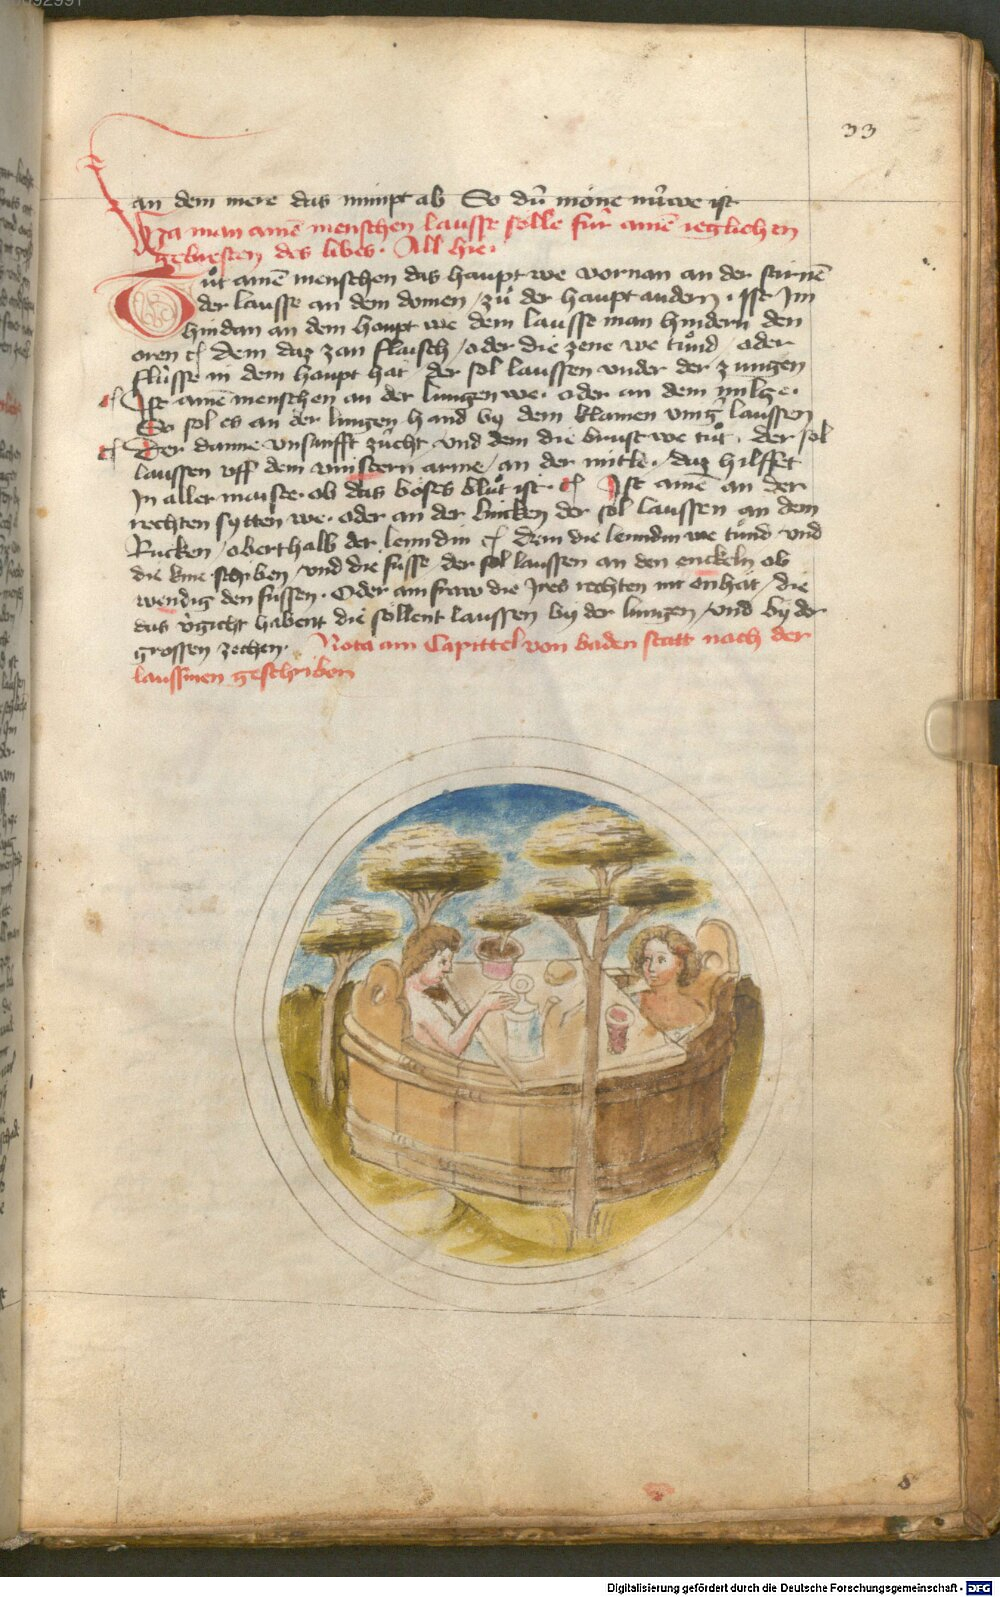 33
an dem mere das nimpt ab So dü mone nüwe ist
Wa man ainē menschen lausse sölle für ainē ieglichen
gebresten des libes. All hie.
Tůt ainē menschen das haupt we vornan an der stirnē
der lausse an dem domen / zů der haupt audern. Ist Im
hindan an dem haupt we dem lausse man hindern den
oren Dem daz zan flaisch / oder die zene we tůnd / oder
flüsse in dem haupt hat / der sol laussen vnder der zungen
Ist ainē menschen an der lungen we. oder an dem milze.
So sol es an der lingen hand by dem klainen laussen
Der dume vnsanfft zücht / vnd dem die brust we tůt. der sol
laussen vff dem arme / an der mitle. / daz hilffet
In aller maiste. ob das böses blůt ist. Ist ainē an der
rechten sytten we. oder an der lincken der sol laussen an dem
Rucken / oberthalb der lenndin Dem die lenndin we tůnd / vnd
die knie schiben / vnd die füsse / der sol laussen an den enckeln ob
wendig den füssen. Oder ain fraw die Ires rechten nit enhăt / die
das vgicht habent die söllent laussen by der lungen / vnd by der
grossen zechen. Nota ain Capittel von baden statt nach der
laussinen geschriben
Digitalisierung gefördert durch die Deutsche Forschungsgemeinschaft - DFG